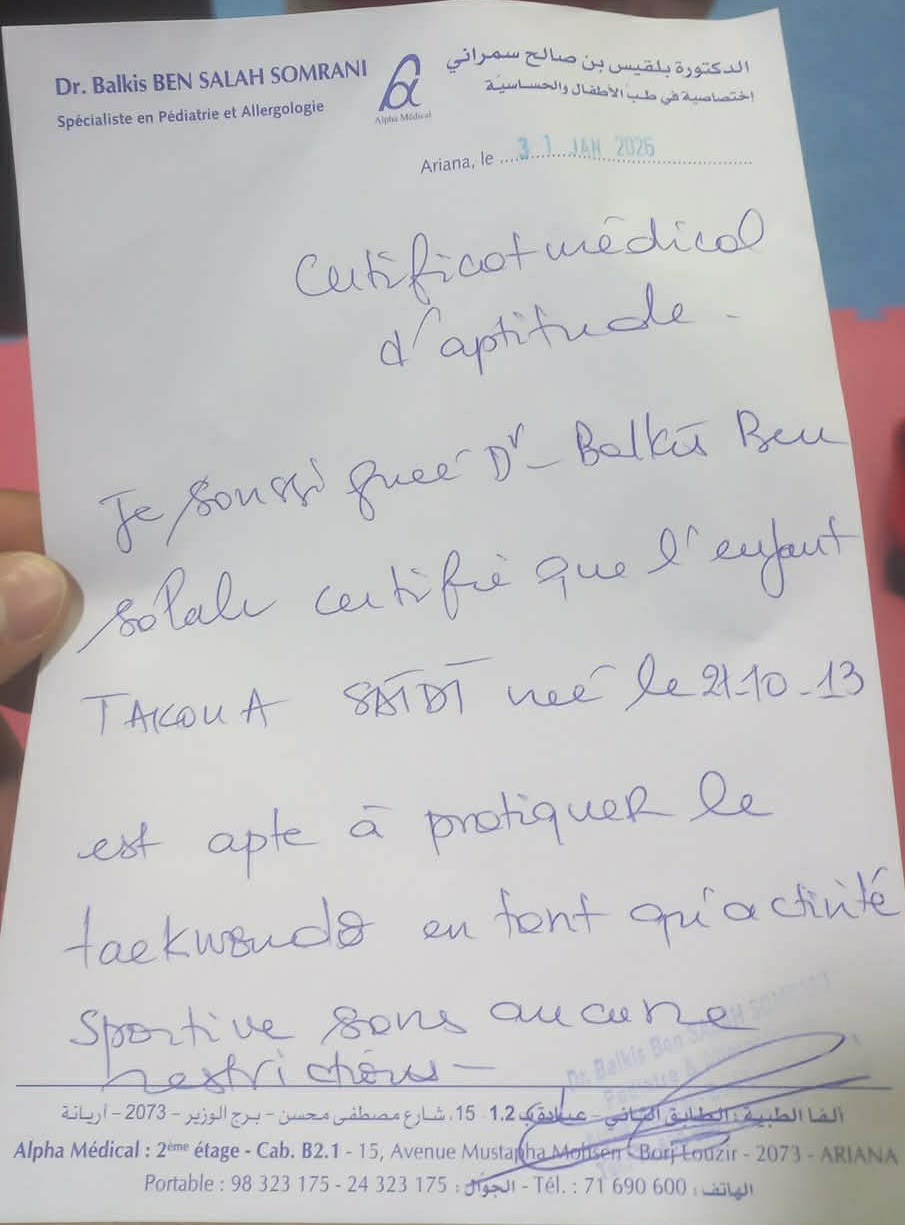 Dr. Balkis BEN SALAH SOMRANI
Spécialiste en Pédiatrie et Allergologie
Alpha Médical
الدكتورة بلقيس بن صالح سمراني
إختصاصية في طب الأطفال والحساسية
Ariana, le 31 JAN 2026
Certificat médical
d'aptitude.
Je soussignée Dr Balkis Ben
Salah certifie que l'enfant
TAKOUA SAÏDI née le 21-10-13
est apte à pratiquer le
taekwondo en tant qu'activité
sportive sans aucune
restrictions
Dr. Balkis Ben SALAH SOMRANI
Pédiatrie &
ألفا الطبية : الطابق الثاني - عيادة ب 1.2 - 15، شارع مصطفى محسن - برج الوزير - 2073 - أريانة
Alpha Médical : 2ème étage - Cab. B2.1 - 15, Avenue Mustapha Mohsen - Borj Louzir - 2073 - ARIANA
Portable : 98 323 175 - 24 323 175 : الجوّال - Tél. : 71 690 600 : الهاتف